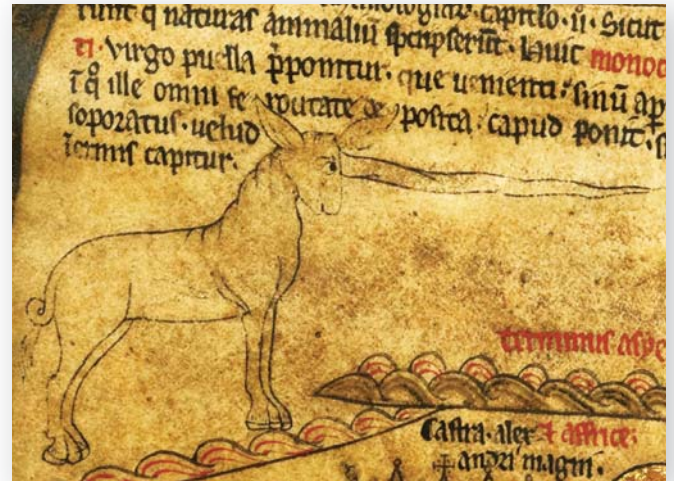 runt· q naturas animaliū sc̄ripserūt· Huic monoc
ti· virgo puella p̄ponitur· que uenienti· sinū ap̄
ī q̊ ille omni fe rocitate de posita· capud ponit· s
soporatus· uelud
īermis capitur·
terminus asye
Castra· alex
⁊ affrice·
andri magni·